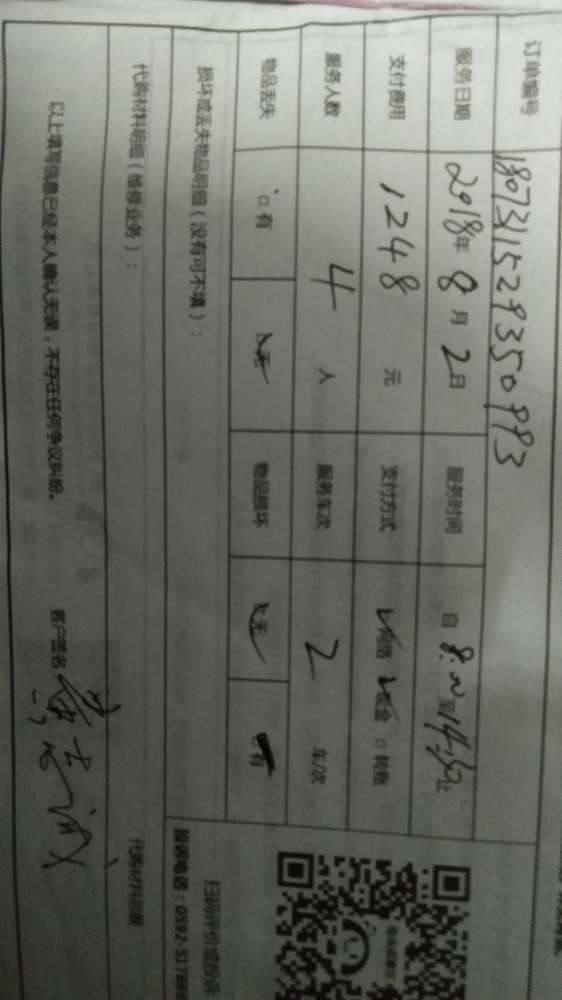 订单编号 180731529350993
服务日期 2018年 8月 2日 服务时间 自 8:00至14:30止
支付费用 1248 元 支付方式 ☑网络 ☑现金 □转账
服务人数 4 人 服务车次 2 车/次
物品丢失 □有 ☑无 物品损坏 ☑无 有
损坏或丢失物品明细（没有可不填）：
代购材料明细（维修业务）：
代购材料总额
以上填写信息已经本人确认无误，不存在任何争议纠纷。 客户签名
扫码评价或投诉
投诉电话：0592-5178